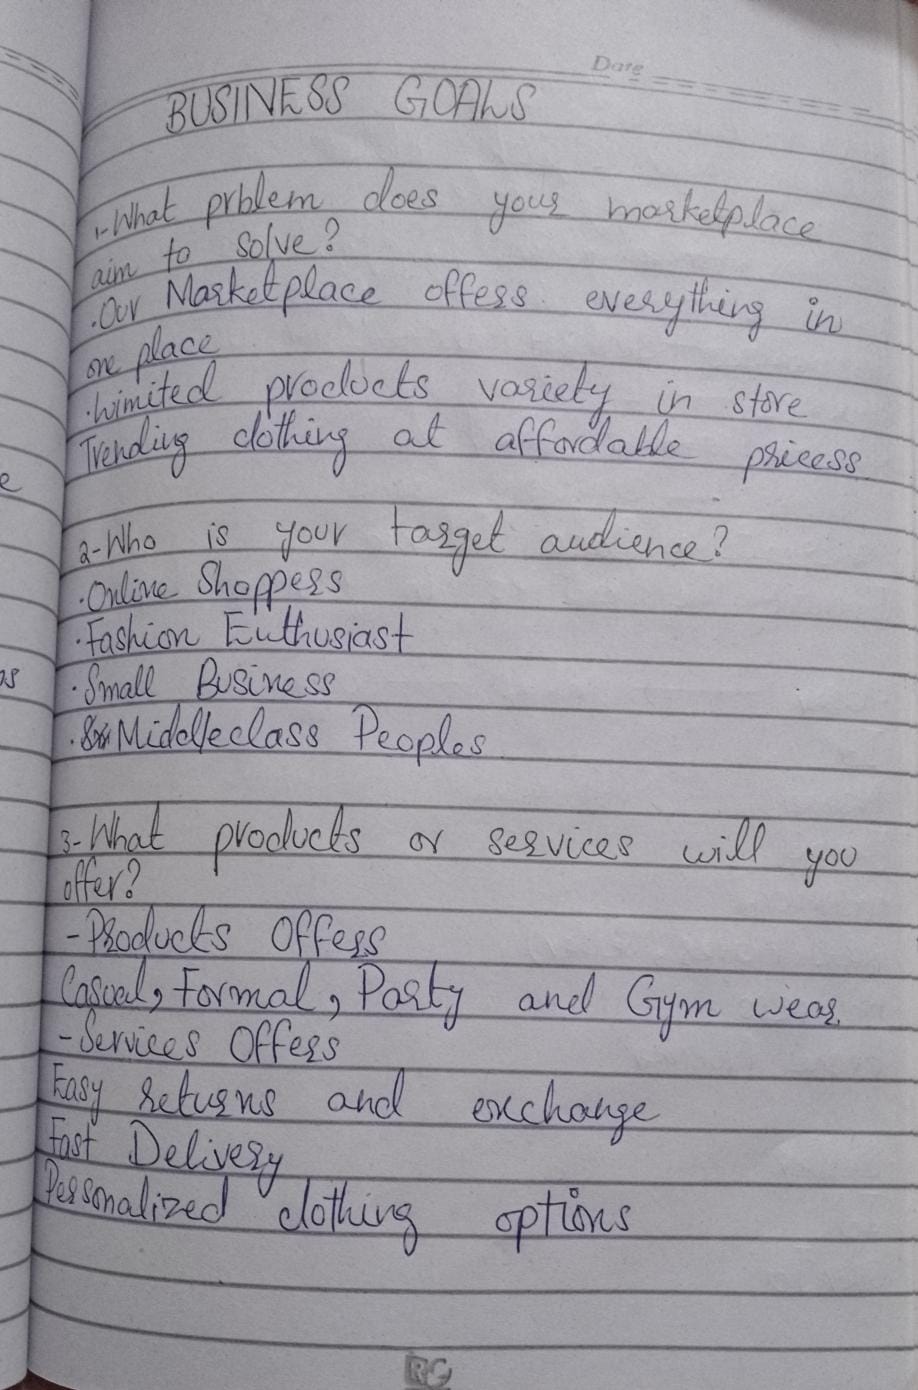 Date
BUSINESS GOALS
1-What prblem does your marketplace
aim to solve?
.Our Marketplace offers everything in
one place
.Limited products variety in store
Trending clothing at affordable pricess
2-Who is your target audience?
.Online Shoppers
.Fashion Enthusiast
.Small Business
.Middleclass Peoples
3-What products or services will you
offer?
-Products Offers
Casual, Formal, Party and Gym wear.
-Services Offers
Easy returns and exchange
Fast Delivery
Personalized clothing options
RG